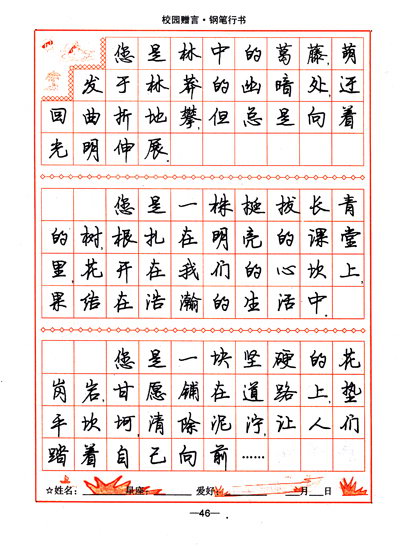 校园赠言·钢笔行书
您是林中的葛藤,萌
发于林莽的幽暗处,迂
回曲折地攀,但总是向着
光明伸展.
您是一株挺拔长青
的树,根扎在明亮的课堂
里,花开在我们的心坎上,
果结在浩瀚的生活中.
您是一块坚硬的花
岗岩,甘愿铺在道路上,垫
平坎坷,清除泥泞,让人们
踏着自己向前……
☆姓名:________星座:________爱好:________月__日
—46—